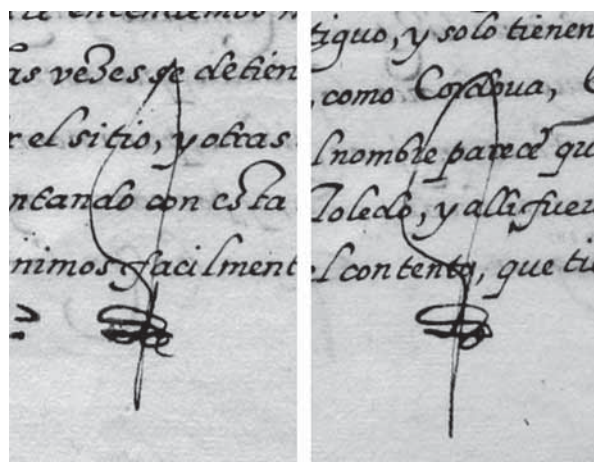 as vezes se detien
r el sitio, y otras
ntando con esta
nimos facilment
tiguo, y solo tienen
, como Cordoua,
l nombre parece qu
Toledo, y alli fuer
el contento, que tie